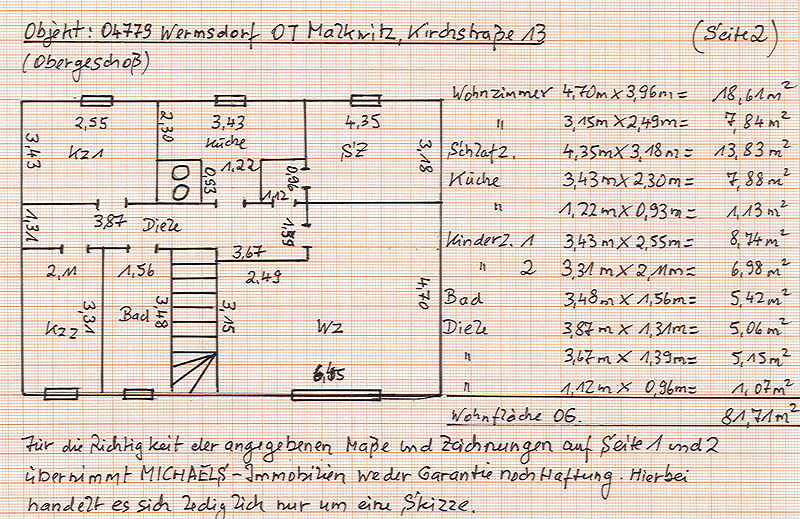 Objekt: 04779 Wermsdorf OT Malkwitz, Kirchstraße 13
(Seite 2)
(Obergeschoß)
2,55
3,43
KZ1
2,30
3,43
Küche
1,22
0,93
4,35
SZ
3,18
0,96
1,12
1,31
3,87
Diele
3,67
1,39
2,11
3,31
KZ2
1,56
Bad
3,48
3,15
2,49
WZ
4,70
Wohnzimmer 4,70m x 3,96m = 18,61m²
" 3,15m x 2,49m = 7,84m²
Schlafz. 4,35m x 3,18m = 13,83m²
Küche 3,43m x 2,30m = 7,88m²
" 1,22m x 0,93m = 1,13m²
Kinderz. 1 3,43m x 2,55m = 8,74m²
" 2 3,31m x 2,11m = 6,98m²
Bad 3,48m x 1,56m = 5,42m²
Diele 3,87m x 1,31m = 5,06m²
" 3,67m x 1,39m = 5,15m²
" 1,12m x 0,96m = 1,07m²
Wohnfläche OG. 81,71m²
Für die Richtigkeit der angegebenen Maße und Zeichnungen auf Seite 1 und 2
übernimmt MICHAELS-Immobilien weder Garantie noch Haftung. Hierbei
handelt es sich lediglich nur um eine Skizze.